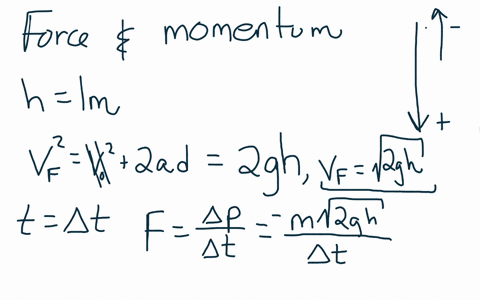 Force & momentum
-
h = 1m
+
V_F² = V₀² + 2ad = 2gh, V_F = √2gh
t = Δt F = Δp/Δt = -m√2gh/Δt